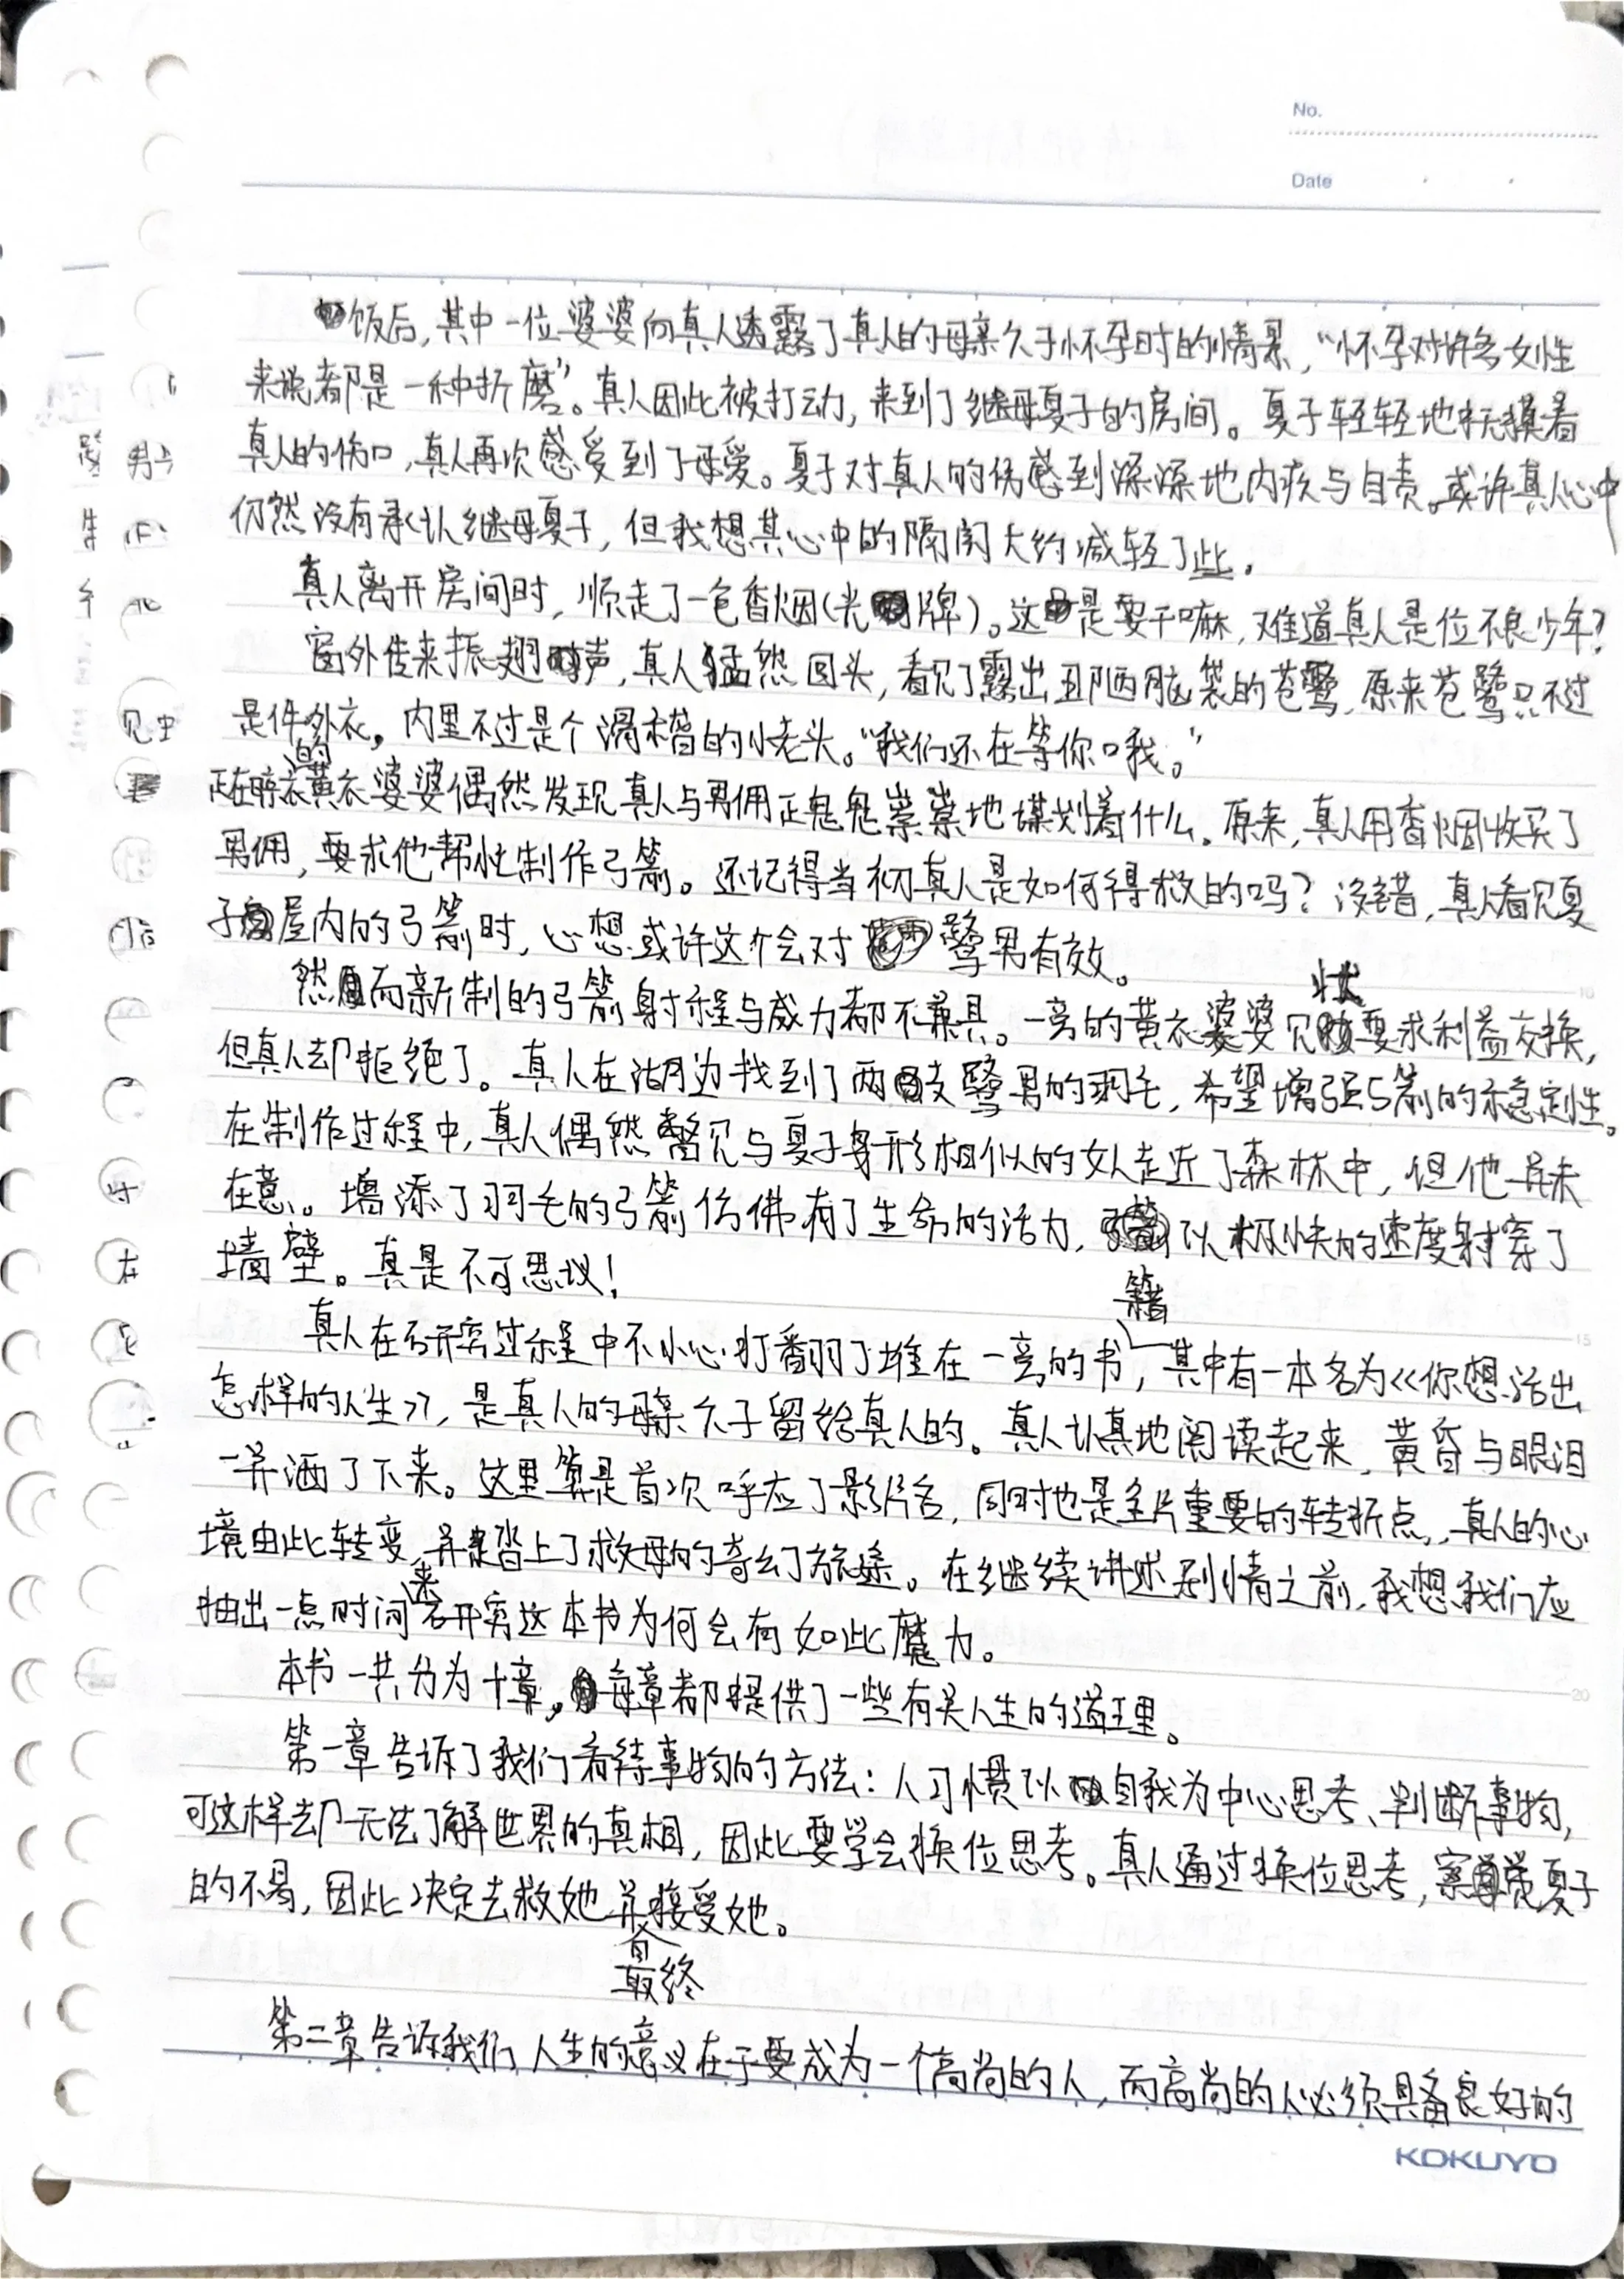 No.
Date
饭后，其中一位婆婆向真人透露了真人的母亲久子怀孕时的情景，“怀孕对许多女性
来说都是一种折磨”。真人因此被打动，来到了继母夏子的房间。夏子轻轻地抚摸着
真人的伤口，真人再次感受到了母爱。夏子对真人的伤感到深深地内疚与自责。或许真人心中
仍然没有承认继母夏子，但我想其心中的隔阂大约减轻了些。
真人离开房间时，顺走了一包香烟（光牌）。这是要干嘛，难道真人是位不良少年？
窗外传来振翅声，真人猛然回头，看见了露出丑陋脑袋的苍鹭，原来苍鹭只不过
是件外衣，内里不过是个滑稽的小老头。“我们还在等你哦。”
正在晾衣的黄衣婆婆偶然发现真人与男佣正鬼鬼祟祟地谋划着什么。原来，真人用香烟收买了
男佣，要求他帮忙制作弓箭。还记得当初真人是如何得救的吗？没错，真人看见夏
子屋内的弓箭时，心想或许这个会对鹭男有效。
然而新制的弓箭射程与威力都不兼具。一旁的黄衣婆婆见状要求利益交换，
但真人却拒绝了。真人在湖边找到了两支鹭男的羽毛，希望增强弓箭的稳定性。
在制作过程中，真人偶然瞥见与夏子身形相似的女人走近了森林中，但他并未
在意。增添了羽毛的弓箭仿佛有了生命的活力，以极快的速度射穿了
墙壁。真是不可思议！
真人在研究过程中不小心打翻了堆在一旁的书籍，其中有一本名为《你想活出
怎样的人生》，是真人的母亲久子留给真人的。真人认真地阅读起来，黄昏与眼泪
一并洒了下来。这里算是首次呼应了影片名，同时也是全片重要的转折点，真人的心
境由此转变，并踏上了救母的奇幻旅途。在继续讲述剧情之前，我想我们应
抽出一点时间来研究这本书为何会有如此魔力。
本书一共分为十章，每章都提供了一些有关人生的道理。
第一章告诉了我们看待事物的方法：人习惯以自我为中心思考、判断事物，
可这样却无法了解世界的真相，因此要学会换位思考。真人通过换位思考，察觉夏子
的不易，因此决定去救她并最终接受她。
第二章告诉我们，人生的意义在于要成为一个高尚的人，而高尚的人必须具备良好的
KOKUYO